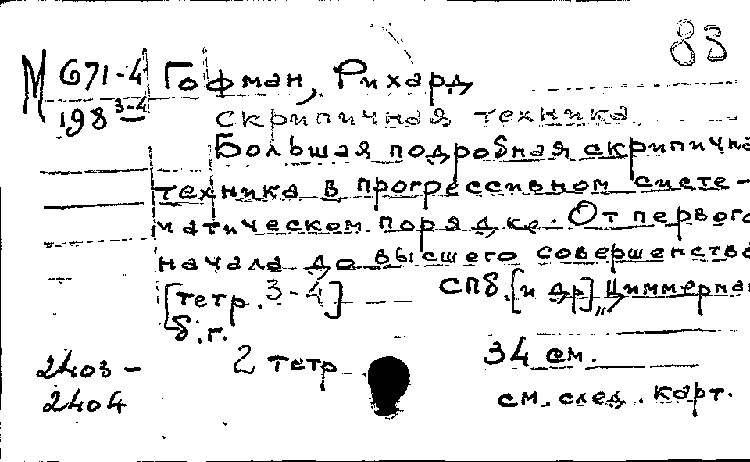 83
М 671-4 Гофман, Рихард
198 3-4 скрипичная техника
Большая подробная скрипична
техника в прогрессивном систе-
матическом порядке. От первого
начала до высшего совершенства
[тетр. 3-4] СПб. [и др], „Циммерман
б.г.
2403 - 2 тетр 34 см.
2404 см. след. карт.